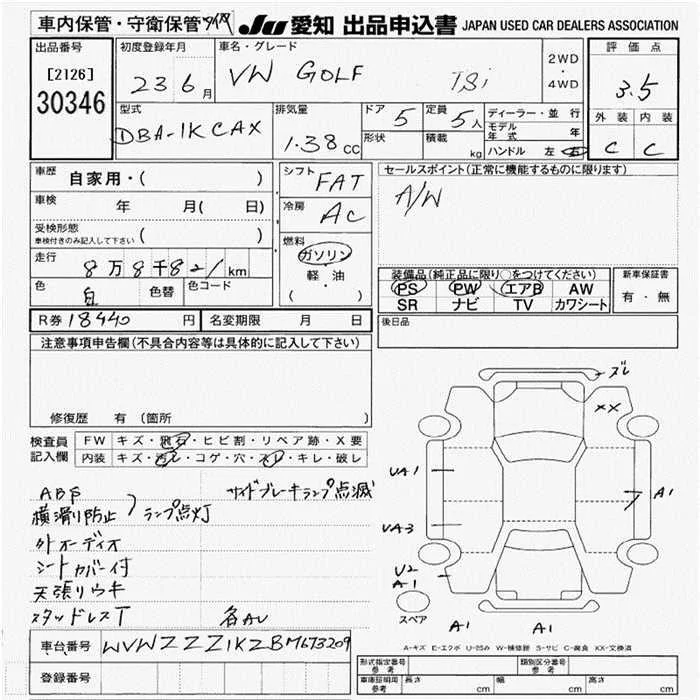 車内保管・守衛保管 JU 愛知 出品申込書 JAPAN USED CAR DEALERS ASSOCIATION
出品番号
[2126]
30346
初度登録年月
23 6月
車名・グレード
VW GOLF TSi
2WD
・
4WD
評価点
3.5
外装 内装
C C
型式
DBA-1KCAX
排気量
1.38cc
ドア 5
形状
定員 5人
積載 kg
ディーラー・並行
モデル年式 年
ハンドル 左 右
車歴
自家用・( )
車検 年 月( 日)
受検形態
車検付きのみ記入して下さい ( )
走行 8万8千821km
色 白 色替 色コード
シフト FAT
冷房 AC
燃料
ガソリン
軽・油
( )
セールスポイント(正常に機能するものに限ります)
A/W
装備品(純正品に限り○をつけてください)
PS PW エアB AW
SR ナビ TV カワシート
新車保証書
有・無
R券 18440円 名変期限 月 日
後日品
注意事項申告欄(不具合内容等は具体的に記入して下さい)
修復歴 有(箇所 )
検査員記入欄
FW キズ・飛石・ヒビ割・リペア跡・X要
内装 キズ・汚レ・コゲ・穴・スレ・キレ・破レ
ABS
横滑り防止 ランプ点灯
サイドブレーキランプ点滅
外オーディオ
シートカバー付
天張リウキ
スタッドレスT
各AU
ズレ
XX
UA1
A1
UA3
U2
A1
スペア
A1
A1
A-キズ E-エクボ U-凹み W-補修跡 S-サビ C-腐食 XX-交換済
車台番号 WVWZZZ1KZBM673209
登録番号
形式指定番号 参考
類別区分番号 参考
車庫証明用 参考 長さ cm 幅 cm 高さ cm